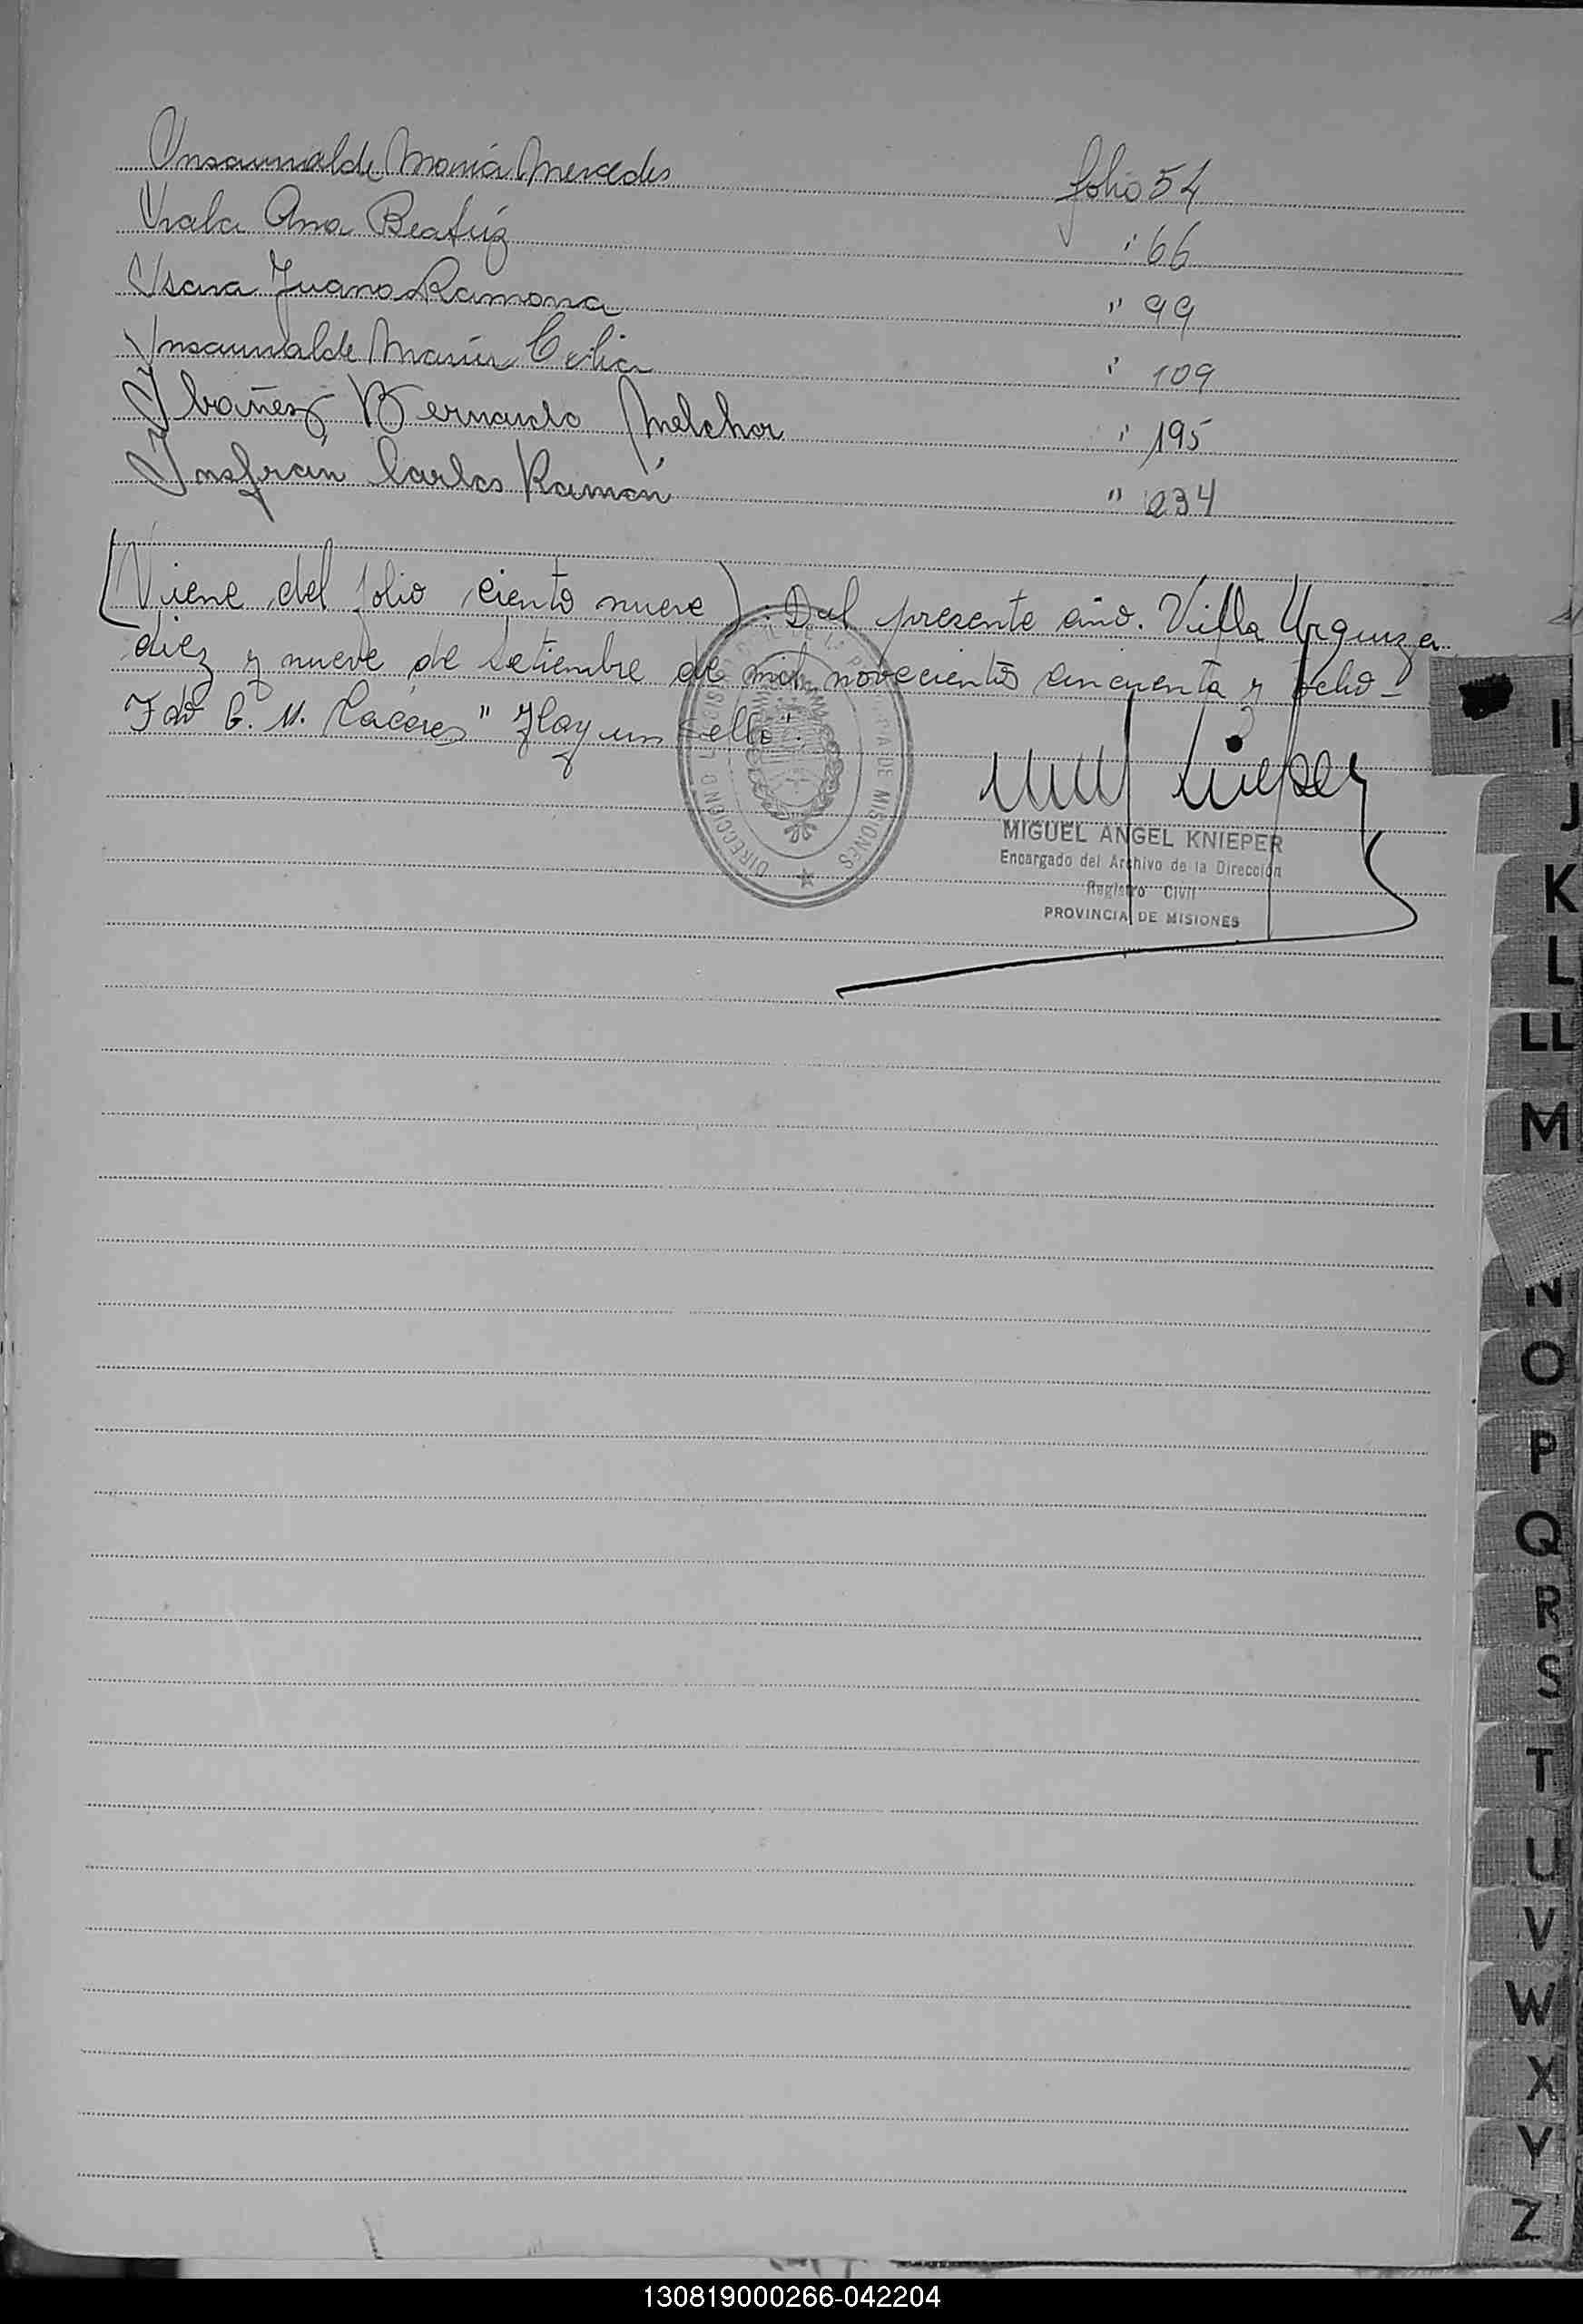 Insaurralde María Mercedes folio 54
Irala Ana Beatriz " 66
Isasa Juana Ramona " 99
Insaurralde María Celia " 109
Ibañez Bernardo Melchor " 195
Insfrán Carlos Ramón " 234
(Viene del folio ciento nueve). Del presente año. Villa Urquiza
diez y nueve de Setiembre de mil novecientos cincuenta y ocho -
Fdo C. M. Cáceres" Hay un sello".
DIRECCION DEL REGISTRO CIVIL DE LA PROVINCIA DE MISIONES
MIGUEL ANGEL KNIEPER
Encargado del Archivo de la Dirección
Registro Civil
PROVINCIA DE MISIONES
I
J
K
L
LL
M
N
O
P
Q
R
S
T
U
V
W
X
Y
Z
130819000266-042204